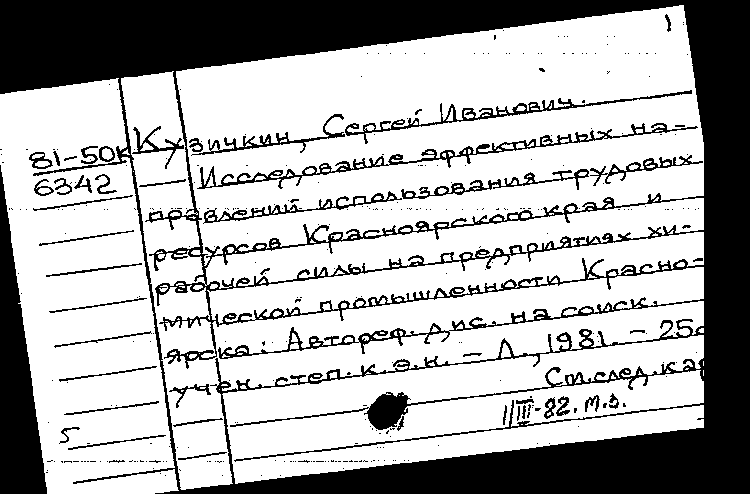 1
81-50к
6342
Кузичкин, Сергей Иванович.
Исследование эффективных на-
правлений использования трудовых
ресурсов Красноярского края и
рабочей силы на предприятиях хи-
мической промышленности Красно-
ярска: Автореф. дис. на соиск.
учен. степ. к.э.н. - Л., 1981. - 25с
См.след.кар
1/III-82. м.з.
5